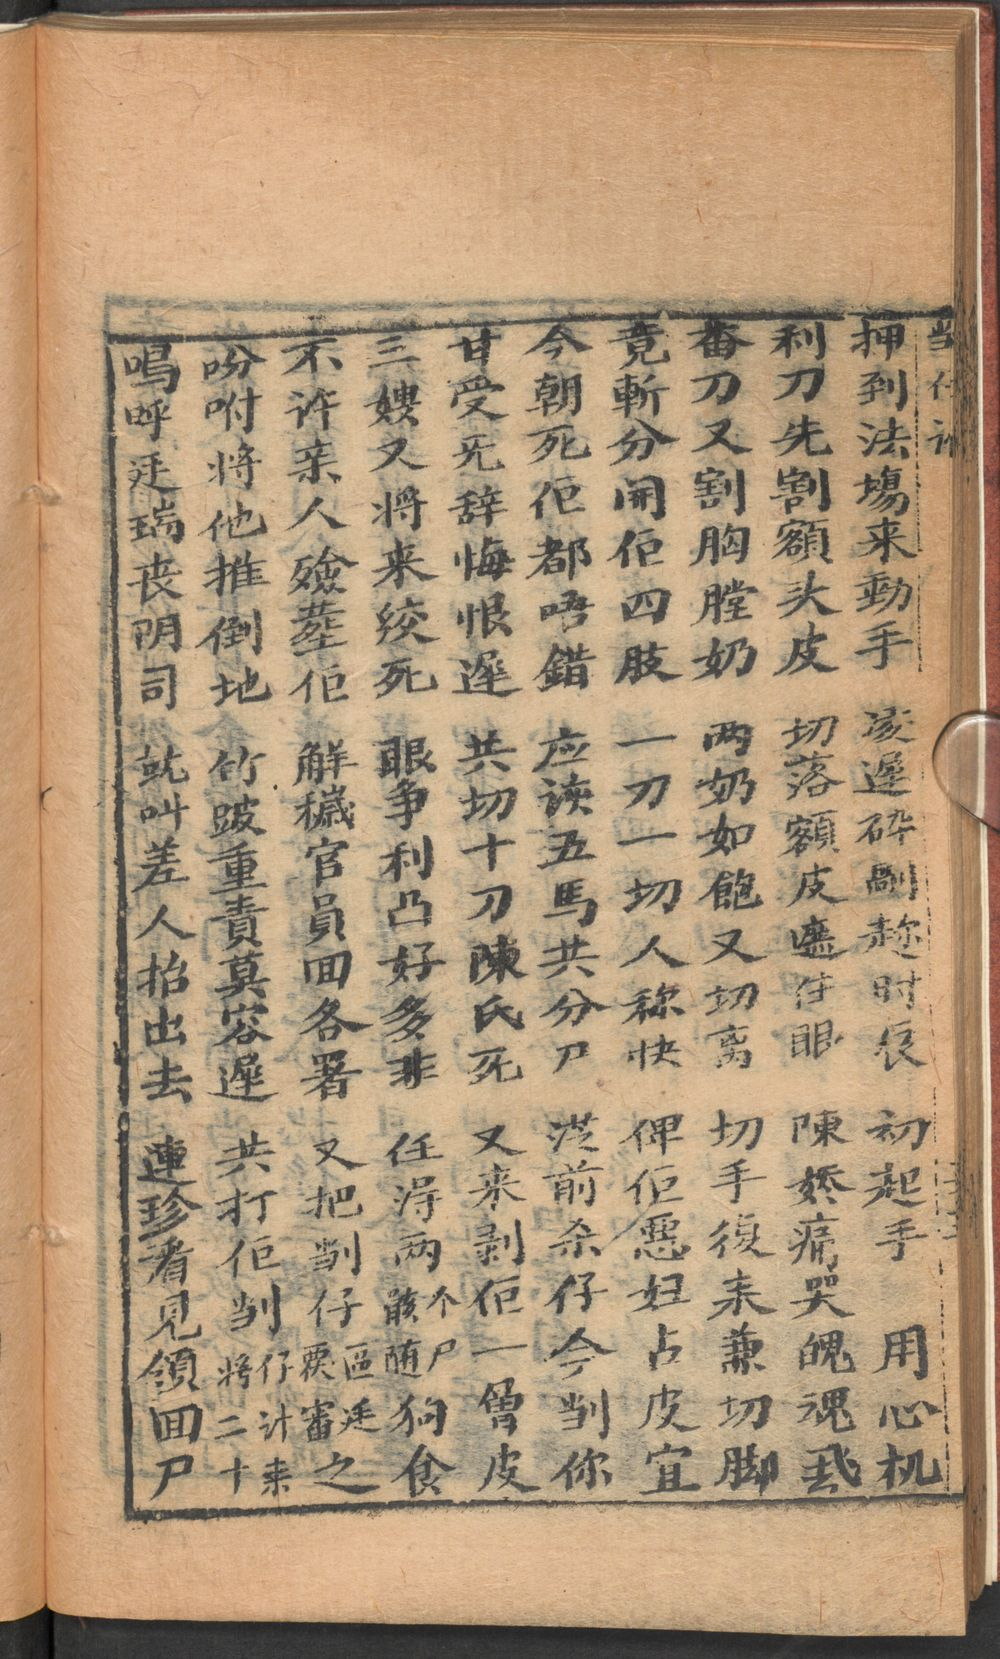 押到法塲来動手　凌遲碎剮趂时辰　初起手　用心机
利刀先割額头皮　切落額皮遮住眼　陳嬌痛哭魄魂飛
番刀又割胸膛奶　两奶如飽又切离　切手復来兼切脚
竟斬分開佢四肢　一刀一切人称快　俾佢惡妇占皮宜
今朝死佢都唔錯　应该五馬共分尸　从前杀仔今劏你
甘受死辞悔恨遲　共切十刀陳氏死　又来剥佢一曾皮
三嫂又将来绞死　眼争利凸好多非　任淂两个尸骸随狗食
不许亲人殮塟佢　解穢官員囬各署　又把劏仔區廷票審之
吩咐将他推倒地　竹跛重責莫容遲　共打佢劏仔计来将二十
嗚呼廷瑞丧阴司　就叫差人抬出去　連珍看見領囬尸